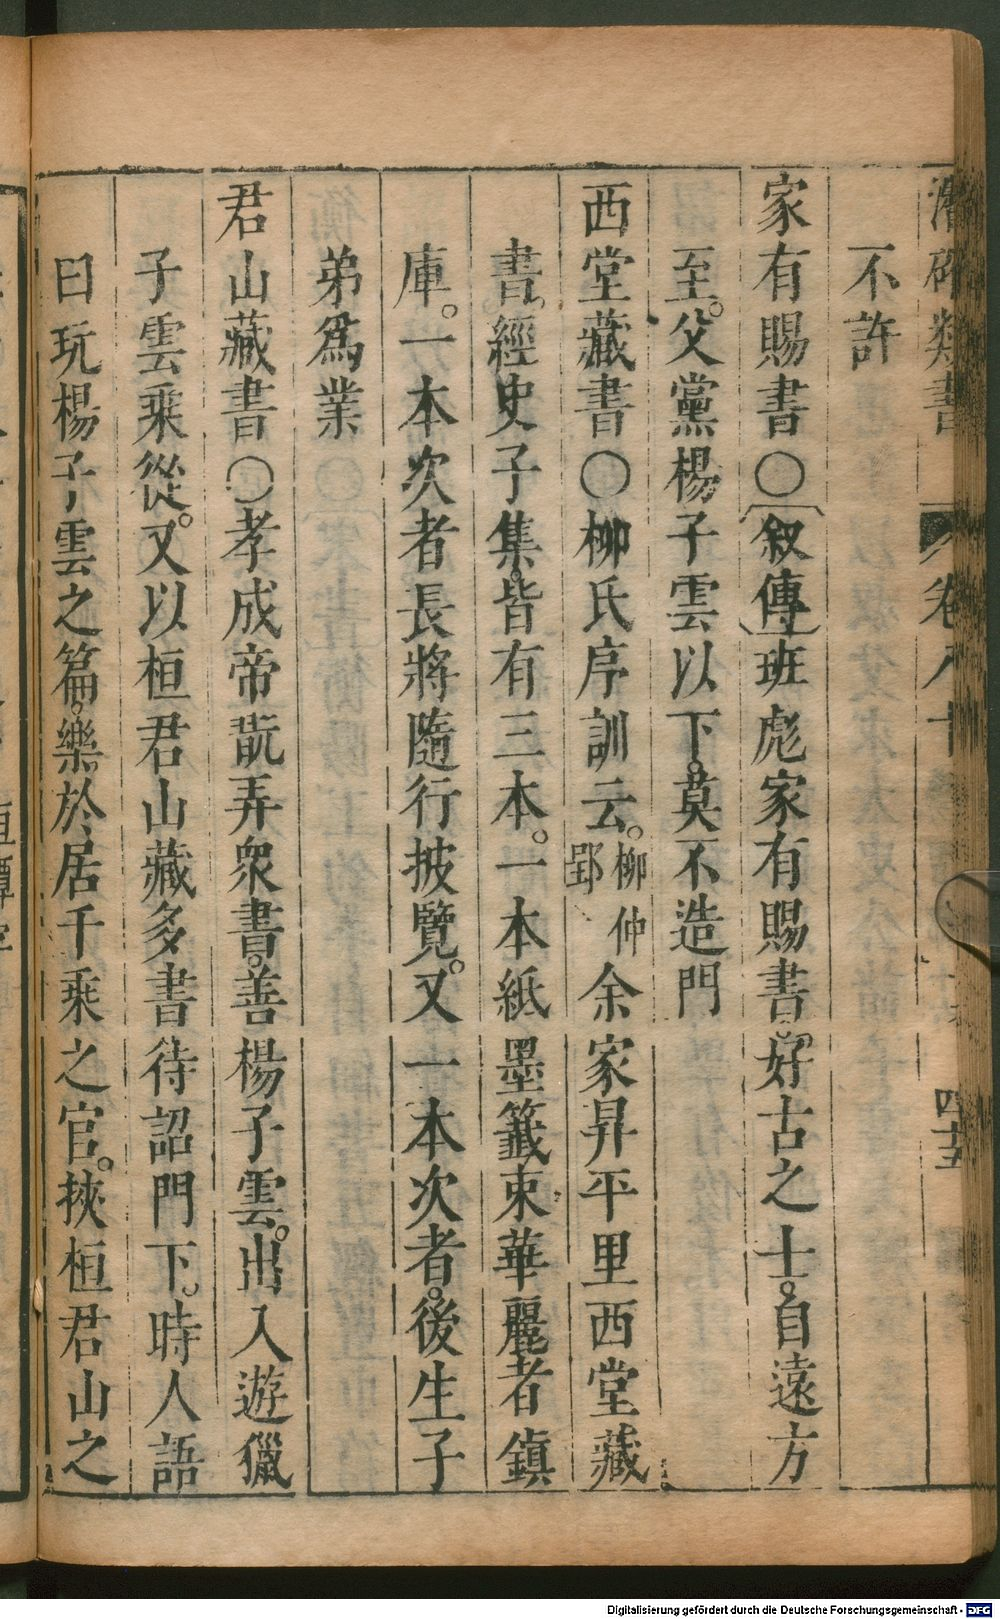 潛確類書 卷八十 四十五
不許
家有賜書○〔叙傳〕班彪家有賜書。好古之士。自遠方
至。父黨楊子雲以下。莫不造門
西堂藏書○柳氏序訓云。柳仲郢余家昇平里西堂藏
書。經史子集。皆有三本。一本紙墨籖束華麗者鎮
庫。一本次者長將隨行披覽。又一本次者。後生子
弟爲業
君山藏書○孝成帝翫弄衆書。善楊子雲。出入遊獵
子雲乗從。又以桓君山藏多書待詔門下。時人語
曰玩楊子雲之篇。樂於居千乗之官。挾桓君山之
Digitalisierung gefördert durch die Deutsche Forschungsgemeinschaft - DFG